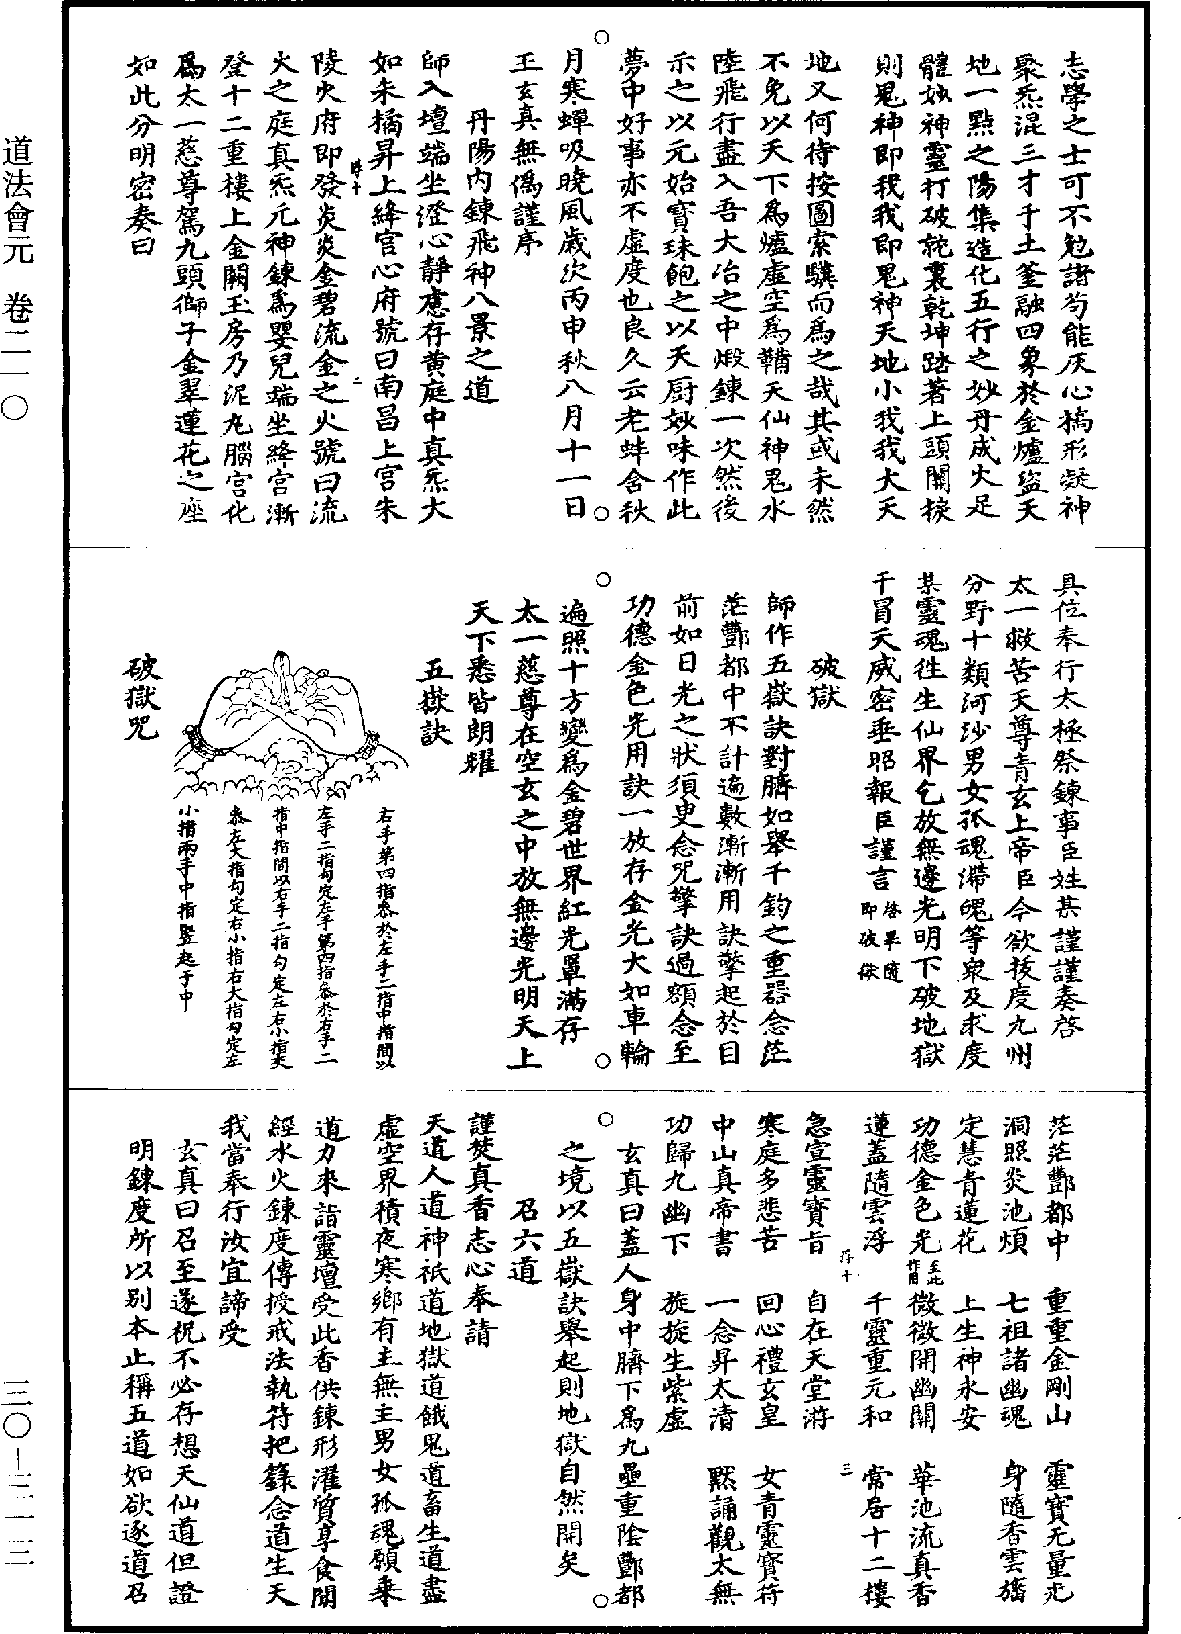 道法會元　卷二一〇
三〇－三一三
志學之士可不勉諸苟能灰心槁形凝神
聚炁混三才于土釜融四象於金爐盜天
地一點之陽集造化五行之妙丹成火足
體妙神靈打破乾裏乾坤踏著上頭關捩
則鬼神即我我即鬼神天地小我我大天
地又何待按圖索驥而為之哉其或未然
不免以天下為爐虛空為鞴天仙神鬼水
陸飛行盡入吾大冶之中煅鍊一次然後
示之以元始寶珠飽之以天厨妙味作此
夢中好事亦不虛度也良久云老蚌含秋
月寒蟬吸曉風歲次丙申秋八月十一日
王玄真無偽謹序
丹陽內鍊飛神八景之道
師入壇端坐澄心靜慮存黃庭中真炁大
如朱橘昇上絳宮心府號曰南昌上宮朱
陵火府即發炎炎金碧流金之火號曰流
火之庭真炁元神鍊為嬰兒端坐絳宮漸
登十二重樓上金闕玉房乃泥丸腦宮化
為太一慈尊駕九頭獅子金翠蓮花之座
如此分明密奏曰
具位奉行太極祭鍊事臣姓某謹謹奏啓
太一救苦天尊青玄上帝臣今欲拔度九州
分野十類河沙男女孤魂滯魄等眾及求度
某靈魂徃生仙界乞放無邊光明下破地獄
干冒天威密垂昭報臣謹言啓畢隨即破獄
破獄
師作五嶽訣對臍如舉千鈞之重器念茫
茫酆都中不計遍數漸漸用訣擎起於目
前如日光之狀須臾念咒擎訣過額念至
功德金色光用訣一放存金光大如車輪
遍照十方變為金碧世界紅光罩滿存
太一慈尊在空玄之中放無邊光明天上
天下悉皆朗耀
五嶽訣
右手第四指叅於左手二指中指間以
左手二指勾定左手第四指叅於右手二
指中指間以右手二指勾定左右小指交
叅左大指勾定右小指右大指勾定左
小指兩手中指竪起于中
破獄咒
茫茫酆都中　重重金剛山　靈寶无量光
洞照炎池煩　七祖諸幽魂　身隨香雲旛
定慧青蓮花　上生神永安
功德金色光至此作用　微微開幽關　華池流真香
蓮蓋隨雲浮　千靈重元和　常居十二樓
急宣靈寶旨　自在天堂遊
寒庭多悲苦　回心禮玄皇　女青靈寶符
中山真帝書　一念昇太清　默誦觀太無
功歸九幽下　旋旋生紫虛
玄真曰蓋人身中臍下為九壘重陰酆都
之境以五嶽訣舉起則地獄自然開矣
召六道
謹焚真香志心奉請
天道人道神祇道地獄道餓鬼道畜生道盡
虛空界積夜寒鄉有主無主男女孤魂願乘
道力來詣靈壇受此香供鍊形濯質享食聞
經水火鍊度傳授戒法執符把籙念道生天
我當奉行汝宜諦受
玄真曰召至遂祝不必存想天仙道但證
明鍊度所以別本止稱五道如欲逐道召